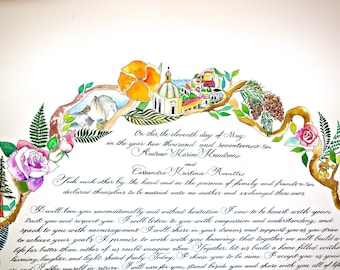 On this, the eleventh day of May
in the year two thousand and seventeen
Andrew Karim
and
Cassandra Kristina
Took each other by the hand and in the presence of family and friends
declared themselves to be married unto one another and exchanged these vows
I will love you unconditionally and without hesitation I vow to be honest with you
trust you and respect you I will listen to you with compassion and understanding, and
speak to you with encouragement I will share in your dreams and support you as you strive
to achieve your goals I promise to work with you knowing that together we will build a
life far better than either of us could imagine alone Together, let us build a home filled with
learning, laughter, and light shared freely Today, I choose you to be mine I accept you as you